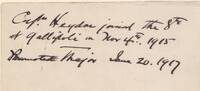 Capt. Heydon joined the 8th
at Gallipoli in Nov 4th. 1915
Promoted Major June 20. 1917